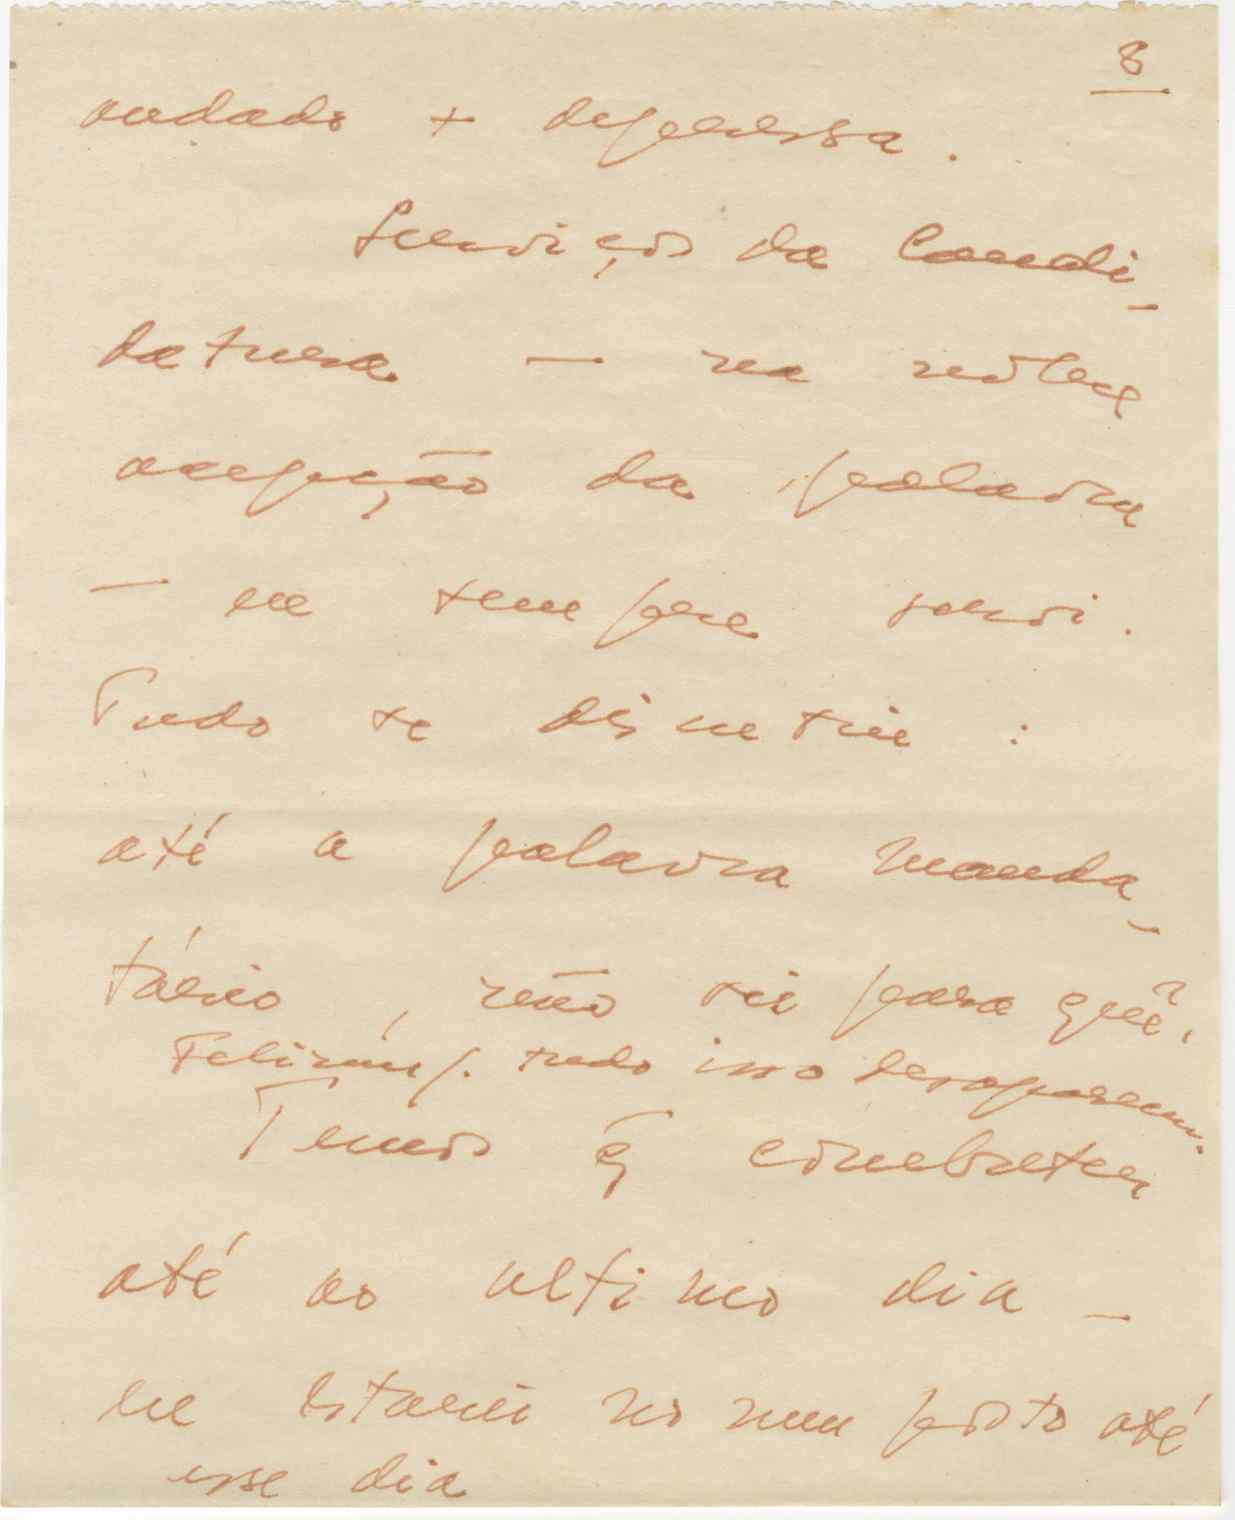 8
andado + depressa.
Serviços da Candi-
datura — na nobre
acepção da palavra
— eu sempre servi.
Tudo se discutiu :
até a palavra manda-
tário, não sei para quê.
Felizm/. tudo isso desapareceu.
Temos q̃ combater
até ao ultimo dia –
eu estarei no meu posto até
esse dia